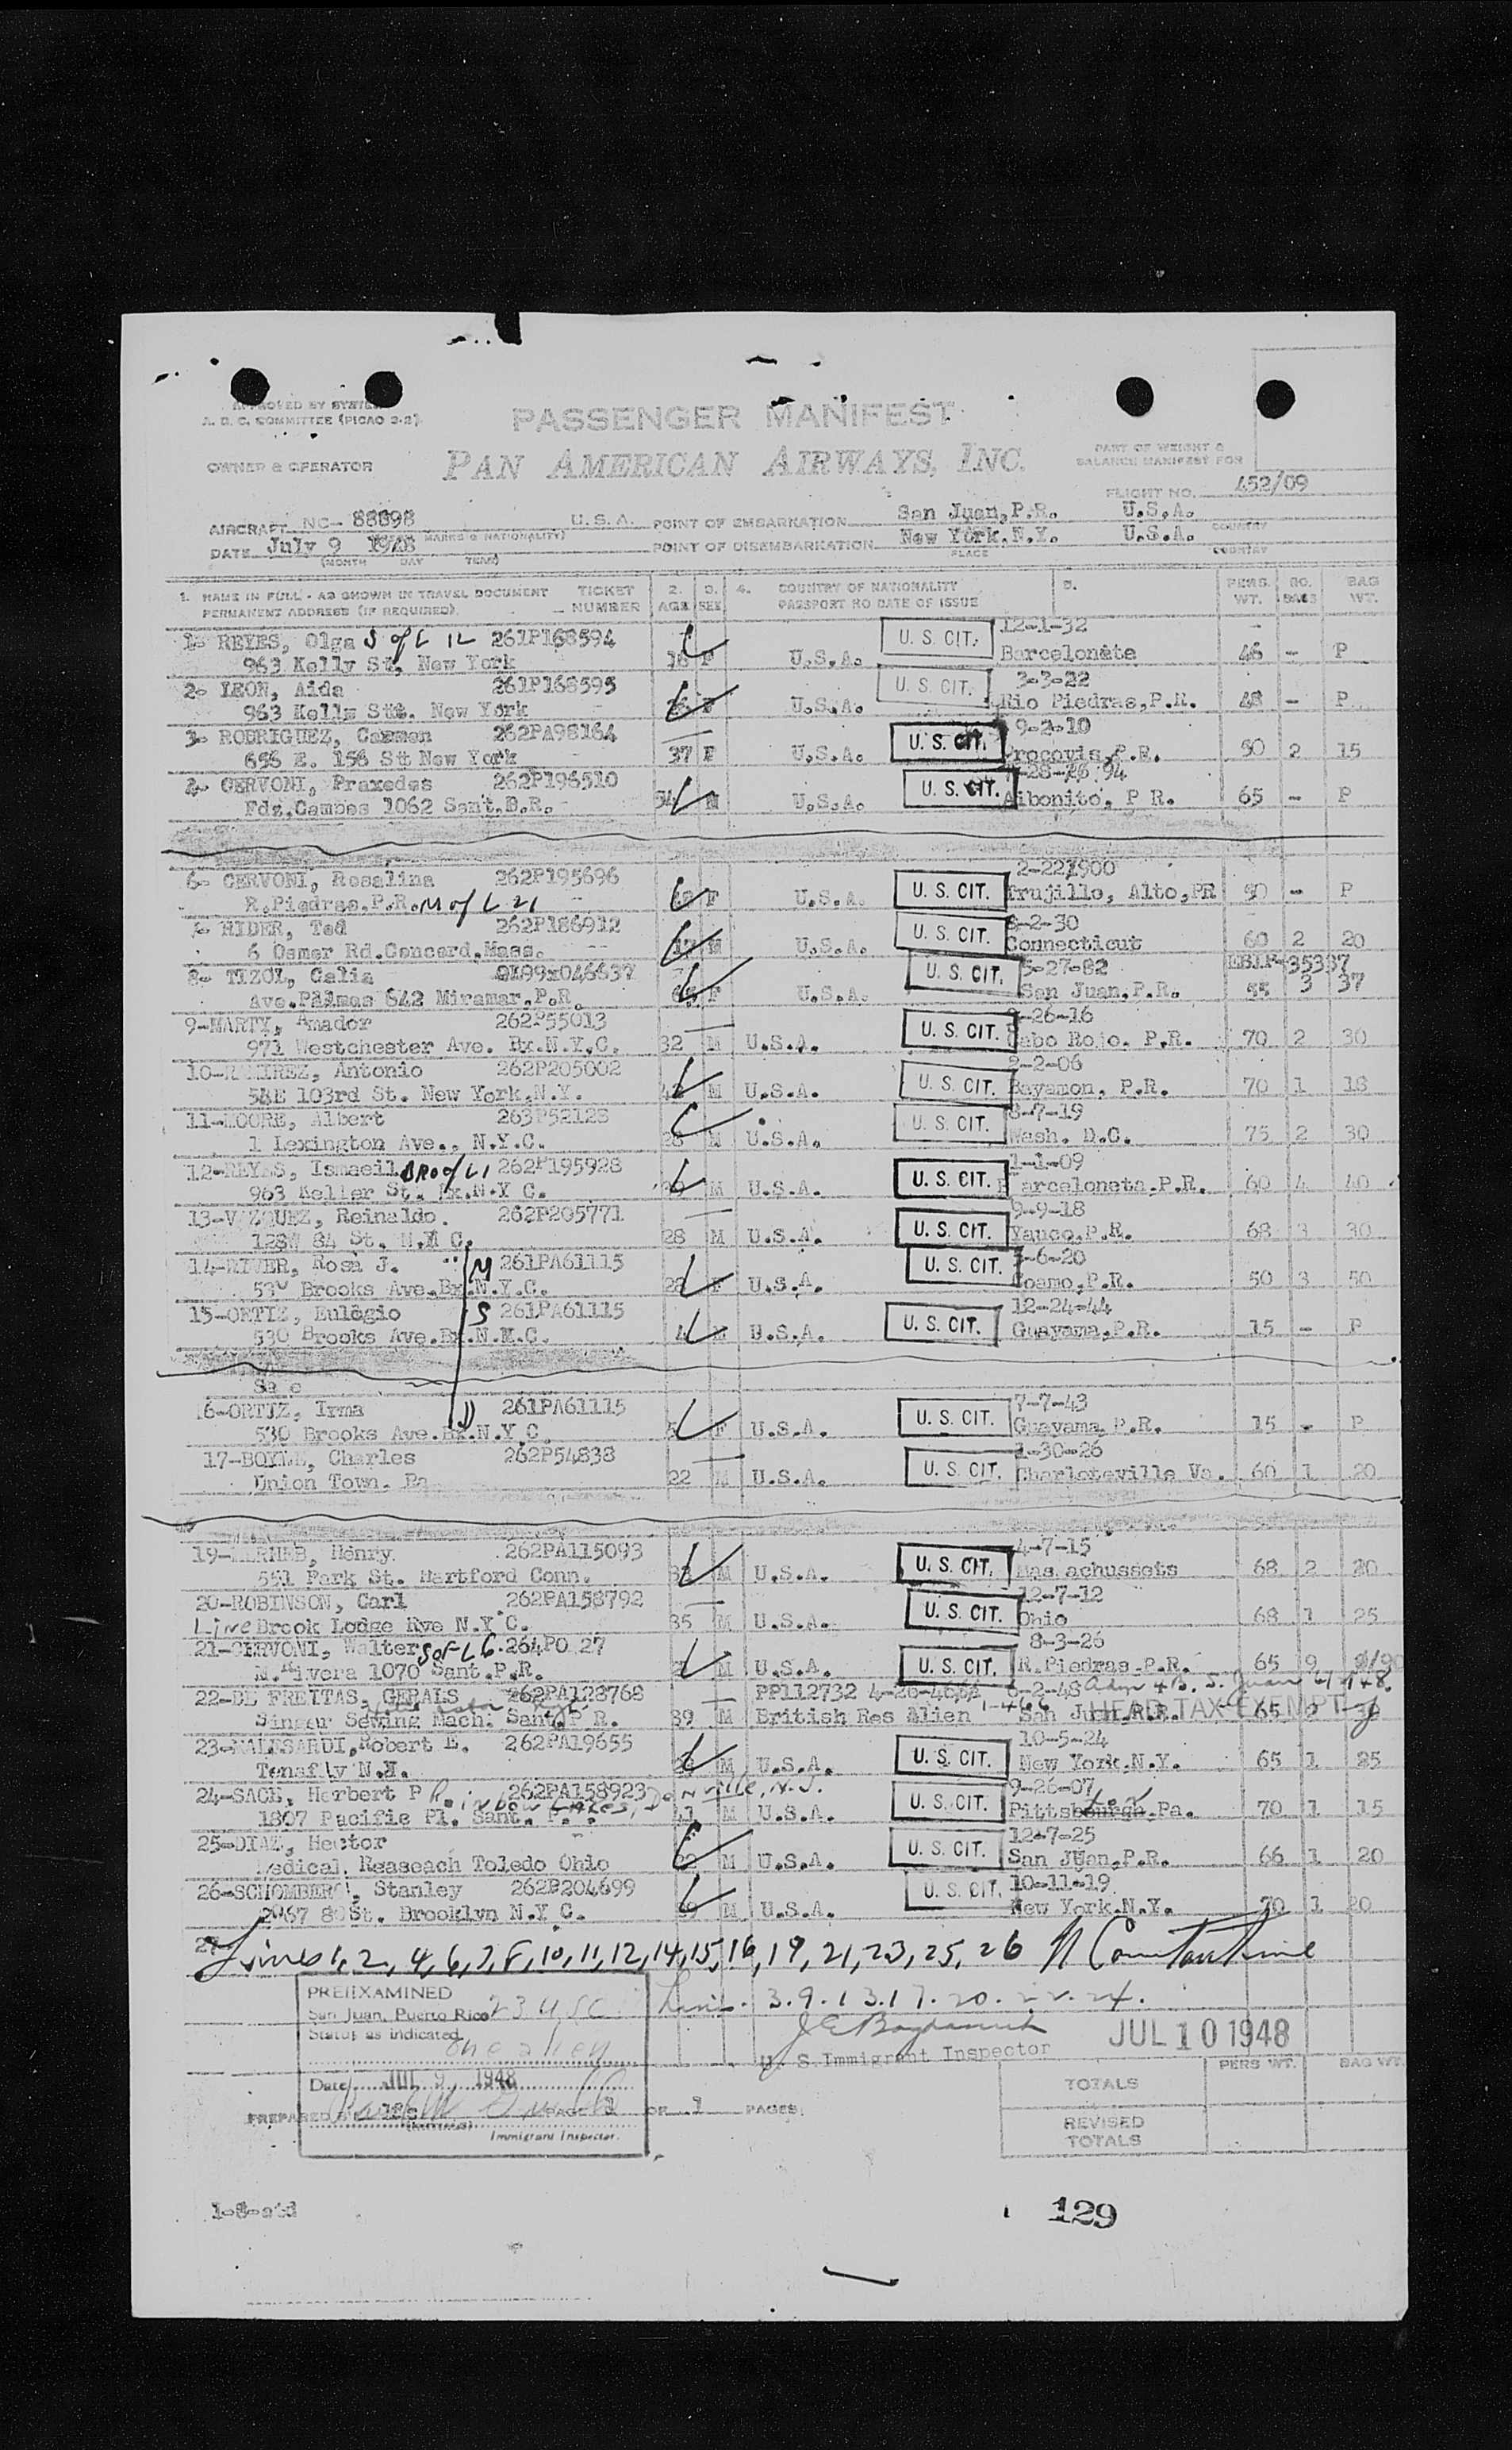 APPROVED BY SYSTEM
A. D. C. COMMITTEE (PICAO 2-2)
PASSENGER MANIFEST
OWNER & OPERATOR PAN AMERICAN AIRWAYS, INC.
PART OF WEIGHT &
BALANCE MANIFEST FOR
FLIGHT NO. 452/09
AIRCRAFT NC- 88898 U.S.A. POINT OF EMBARKATION San Juan, P.R. U.S.A.
(MARKS & NATIONALITY) COUNTRY
DATE July 9 1948 POINT OF DISEMBARKATION New York, N.Y. U.S.A.
(MONTH DAY YEAR) PLACE COUNTRY
1. NAME IN FULL - AS SHOWN IN TRAVEL DOCUMENT TICKET 2. 3. 4. COUNTRY OF NATIONALITY 5. PERS. NO. BAG
PERMANENT ADDRESS (IF REQUIRED). NUMBER AGE SEX PASSPORT NO DATE OF ISSUE WT. BAGS WT.
1- REYES, Olga S of L 12 261P168594 U. S. CIT. 12-1-32
963 Kelly St, New York F U.S.A. Barcelonete 46 - P
2- LEON, Aida 261P168595 U. S. CIT. 3-3-22
963 Kelly St. New York U.S.A. Rio Piedras, P.R. 48 - P
3- RODRIGUEZ, Carmen 262PA98164 U. S. CIT. 9-2-10
656 E. 156 St New York 37 F U.S.A. Orocovis, P.R. 50 2 15
4- CERVONI, Praxedes 262P196510 U. S. CIT.
Fdz. Campos 1062 Sant. P.R. 54 M U.S.A. Aibonito, P R. 65 - P
6- CERVONI, Rosalina 262P195696 2-22-1900
R. Piedras, P.R. M of L 21 F U.S.A. U. S. CIT. Trujillo, Alto, PR 50 - P
7- HIDER, Ted 262P186912 U. S. CIT. 8-2-30
6 Osmer Rd. Concord, Mass. 17 M U.S.A. Connecticut 60 2 20
8- TIZOL, Calia U. S. CIT. 5-27-82 EBLF-35337
Ave. Palmas 642 Miramar, P.R. F U.S.A. San Juan, P.R. 55 3 37
9-MARTY, Amador 262P55013 U. S. CIT. -26-16
971 Westchester Ave. Bx. N.Y.C. 32 M U.S.A. Cabo Rojo, P.R. 70 2 30
10-RAMIREZ, Antonio 262P205002 2-2-06
103rd St. New York, N.Y. 42 M U.S.A. U. S. CIT. Bayamon, P.R. 70 1 18
11-MOORE, Albert 263P52128 U. S. CIT. 8-7-19
1 Lexington Ave., N.Y.C. 28 M U.S.A. Wash. D.C. 75 2 30
12-REYES, Ismaeil BRO of L1 262P195928 1-1-09
963 Keller St. Bx. N.Y C. 39 M U.S.A. U. S. CIT. Barceloneta, P.R. 60 4 40
13-VAZQUEZ, Reinaldo. 262P205771 9-9-18
128W 84 St. N.Y C. 28 M U.S.A. U. S. CIT. Yauco, P.R. 68 3 30
14-RIVER, Rosa J. M 261PA61115 U. S. CIT. -6-20
530 Brooks Ave. Bx. N.Y.C. 28 F U.S.A. Coamo, P.R. 50 3 50
15-ORTIZ, Eulogio S 261PA61115 12-24-44
530 Brooks Ave. Bx. N.Y.C. 4 M U.S.A. U. S. CIT. Guayama, P.R. 15 - P
16-ORTIZ, Irma D 261PA61115 7-7-43
530 Brooks Ave. Bx. N.Y.C. 5 F U.S.A. U. S. CIT. Guayama, P.R. 15 - P
17-BOYLE, Charles 262P54838 1-30-26
Union Town. Pa 22 M U.S.A. U. S. CIT. Charloteville Va. 60 1 20
19- Henry 262PA115093 4-7-15
551 Park St. Hartford Conn. 33 M U.S.A. U. S. CIT. Massachussets 68 2 20
20-ROBINSON, Carl 262PA158792 12-7-12
Line Brook Lodge Rye N.Y C. 35 M U.S.A. U. S. CIT. Ohio 68 1 25
21-CERVONI, Walter S of L 6. 264PO 27 8-3-26
M. Rivera 1070 Sant. P.R. M U.S.A. U. S. CIT. R. Piedras, P.R. 65
22-DE FREITAS, GERALS 262PA128768 PP112732
Singer Sewing Mach. Sant. P R. 39 M British Res Alien San Juan, P.R. HEAD TAX EXEMPT 65
23- Robert E. 262PA19655 10-5-24
Tenafly N.H. M U.S.A. U. S. CIT. New York, N.Y. 65 1 25
24-SACH, Herbert P 262PA158923 Rainbow Lakes, Denville, N.J. 9-26-07
1807 Pacific Pl. Sant. P.R. 41 M U.S.A. U. S. CIT. Pittsbourgh, Pa. 70 1 15
25-DIAZ, Hector 12-7-25
Medical, Reaseach Toledo Ohio 22 M U.S.A. U. S. CIT. San Juan, P.R. 66 1 20
26-SCHOMBERG, Stanley 262P204699 U. S. CIT. 10-11-19
2067 80 St. Brooklyn N.Y C. M U.S.A. New York, N.Y. 70 1 20
27
Lines 1, 2, 4, 6, 7, 8, 10, 11, 12, 14, 15, 16, 19, 21, 23, 25, 26 N Constantine
PREEXAMINED
San Juan, Puerto Rico 23 USC Lines. 3. 9. 13. 17. 20. 22. 24.
Status as indicated
one alien
U. S. Immigrant Inspector JUL 10 1948
Date JUL 9, 1948
PREPARED BY PAGE OF PAGES
Immigrant Inspector.
PERS WT. BAG WT.
TOTALS
REVISED
TOTALS
129